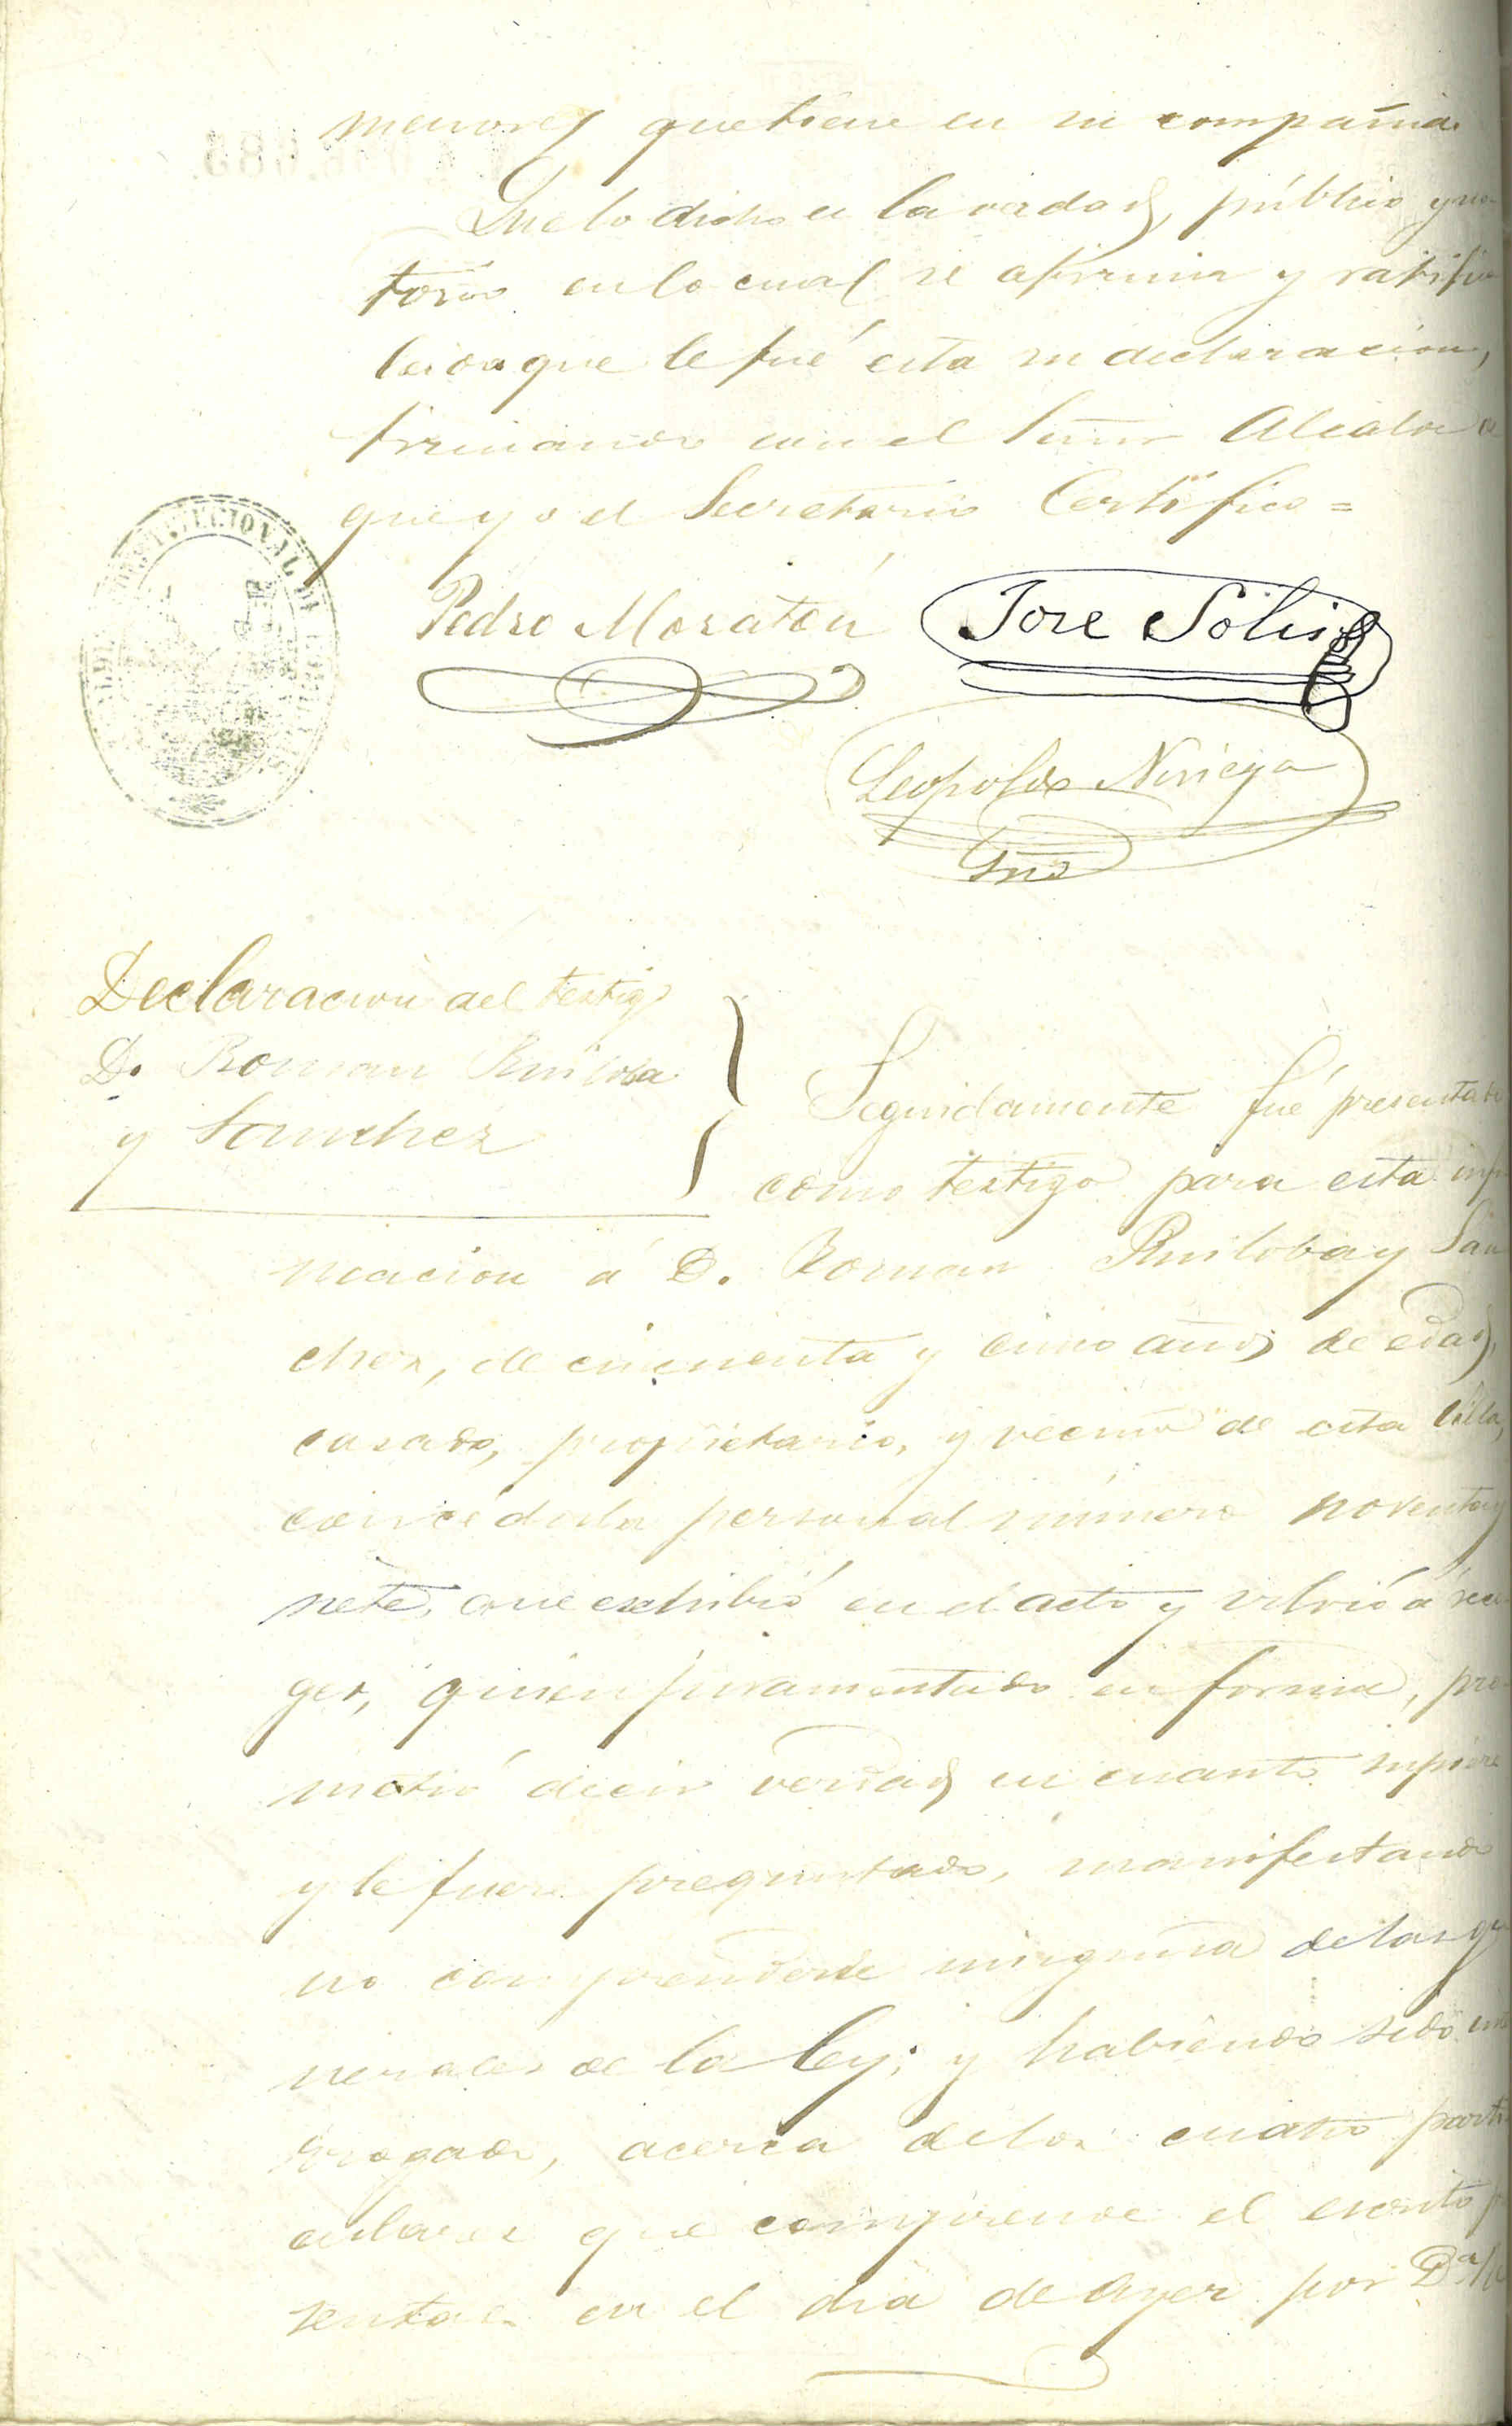 menores que tiene en su compañia.
Que lo dicho es la verdad, público y no-
torio en lo cual se afirma y ratifica
leida que le fué esta su declaración,
firmando con el Señor Alcalde de
que yo el Secretario Certifico =
CONSTITUCIONAL DE
Pedro Moratón
Jose Solis
Leopoldo Noriega
Srio
Declaracion del testigo
D. Roman Ruiloba
y Sanchez
Seguidamente fué presentado
como testigo para esta infor
macion á D. Roman Ruiloba y Sán
chez, de cincuenta y cinco años de edad,
casado, propietario, y vecino de esta Villa,
con cédula personal número noventa y
siete, que exhibió en el acto y volvió á reco-
ger, quien juramentado en forma, pro-
metió decir verdad en cuanto supiere
y le fuere preguntado, manifestando
no comprenderle ninguna de las ge
nerales de la ley; y habiendo sido inte
rrogado, acerca de los cuatro parti
culares que comprende el escrito pre
sentado en el dia de ayer por Dª